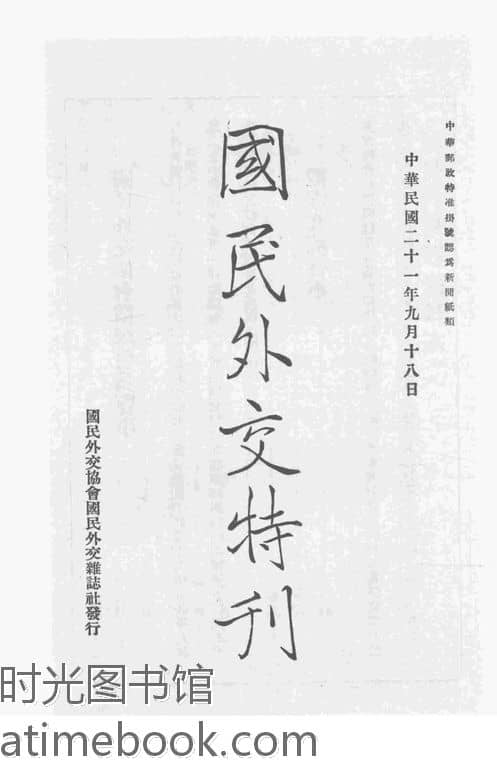 中華郵政特准掛號認爲新聞紙類
中華民國二十一年九月十八日
國民外交特刊
國民外交協會國民外交雜誌社發行
时光图书馆
atimebook.com